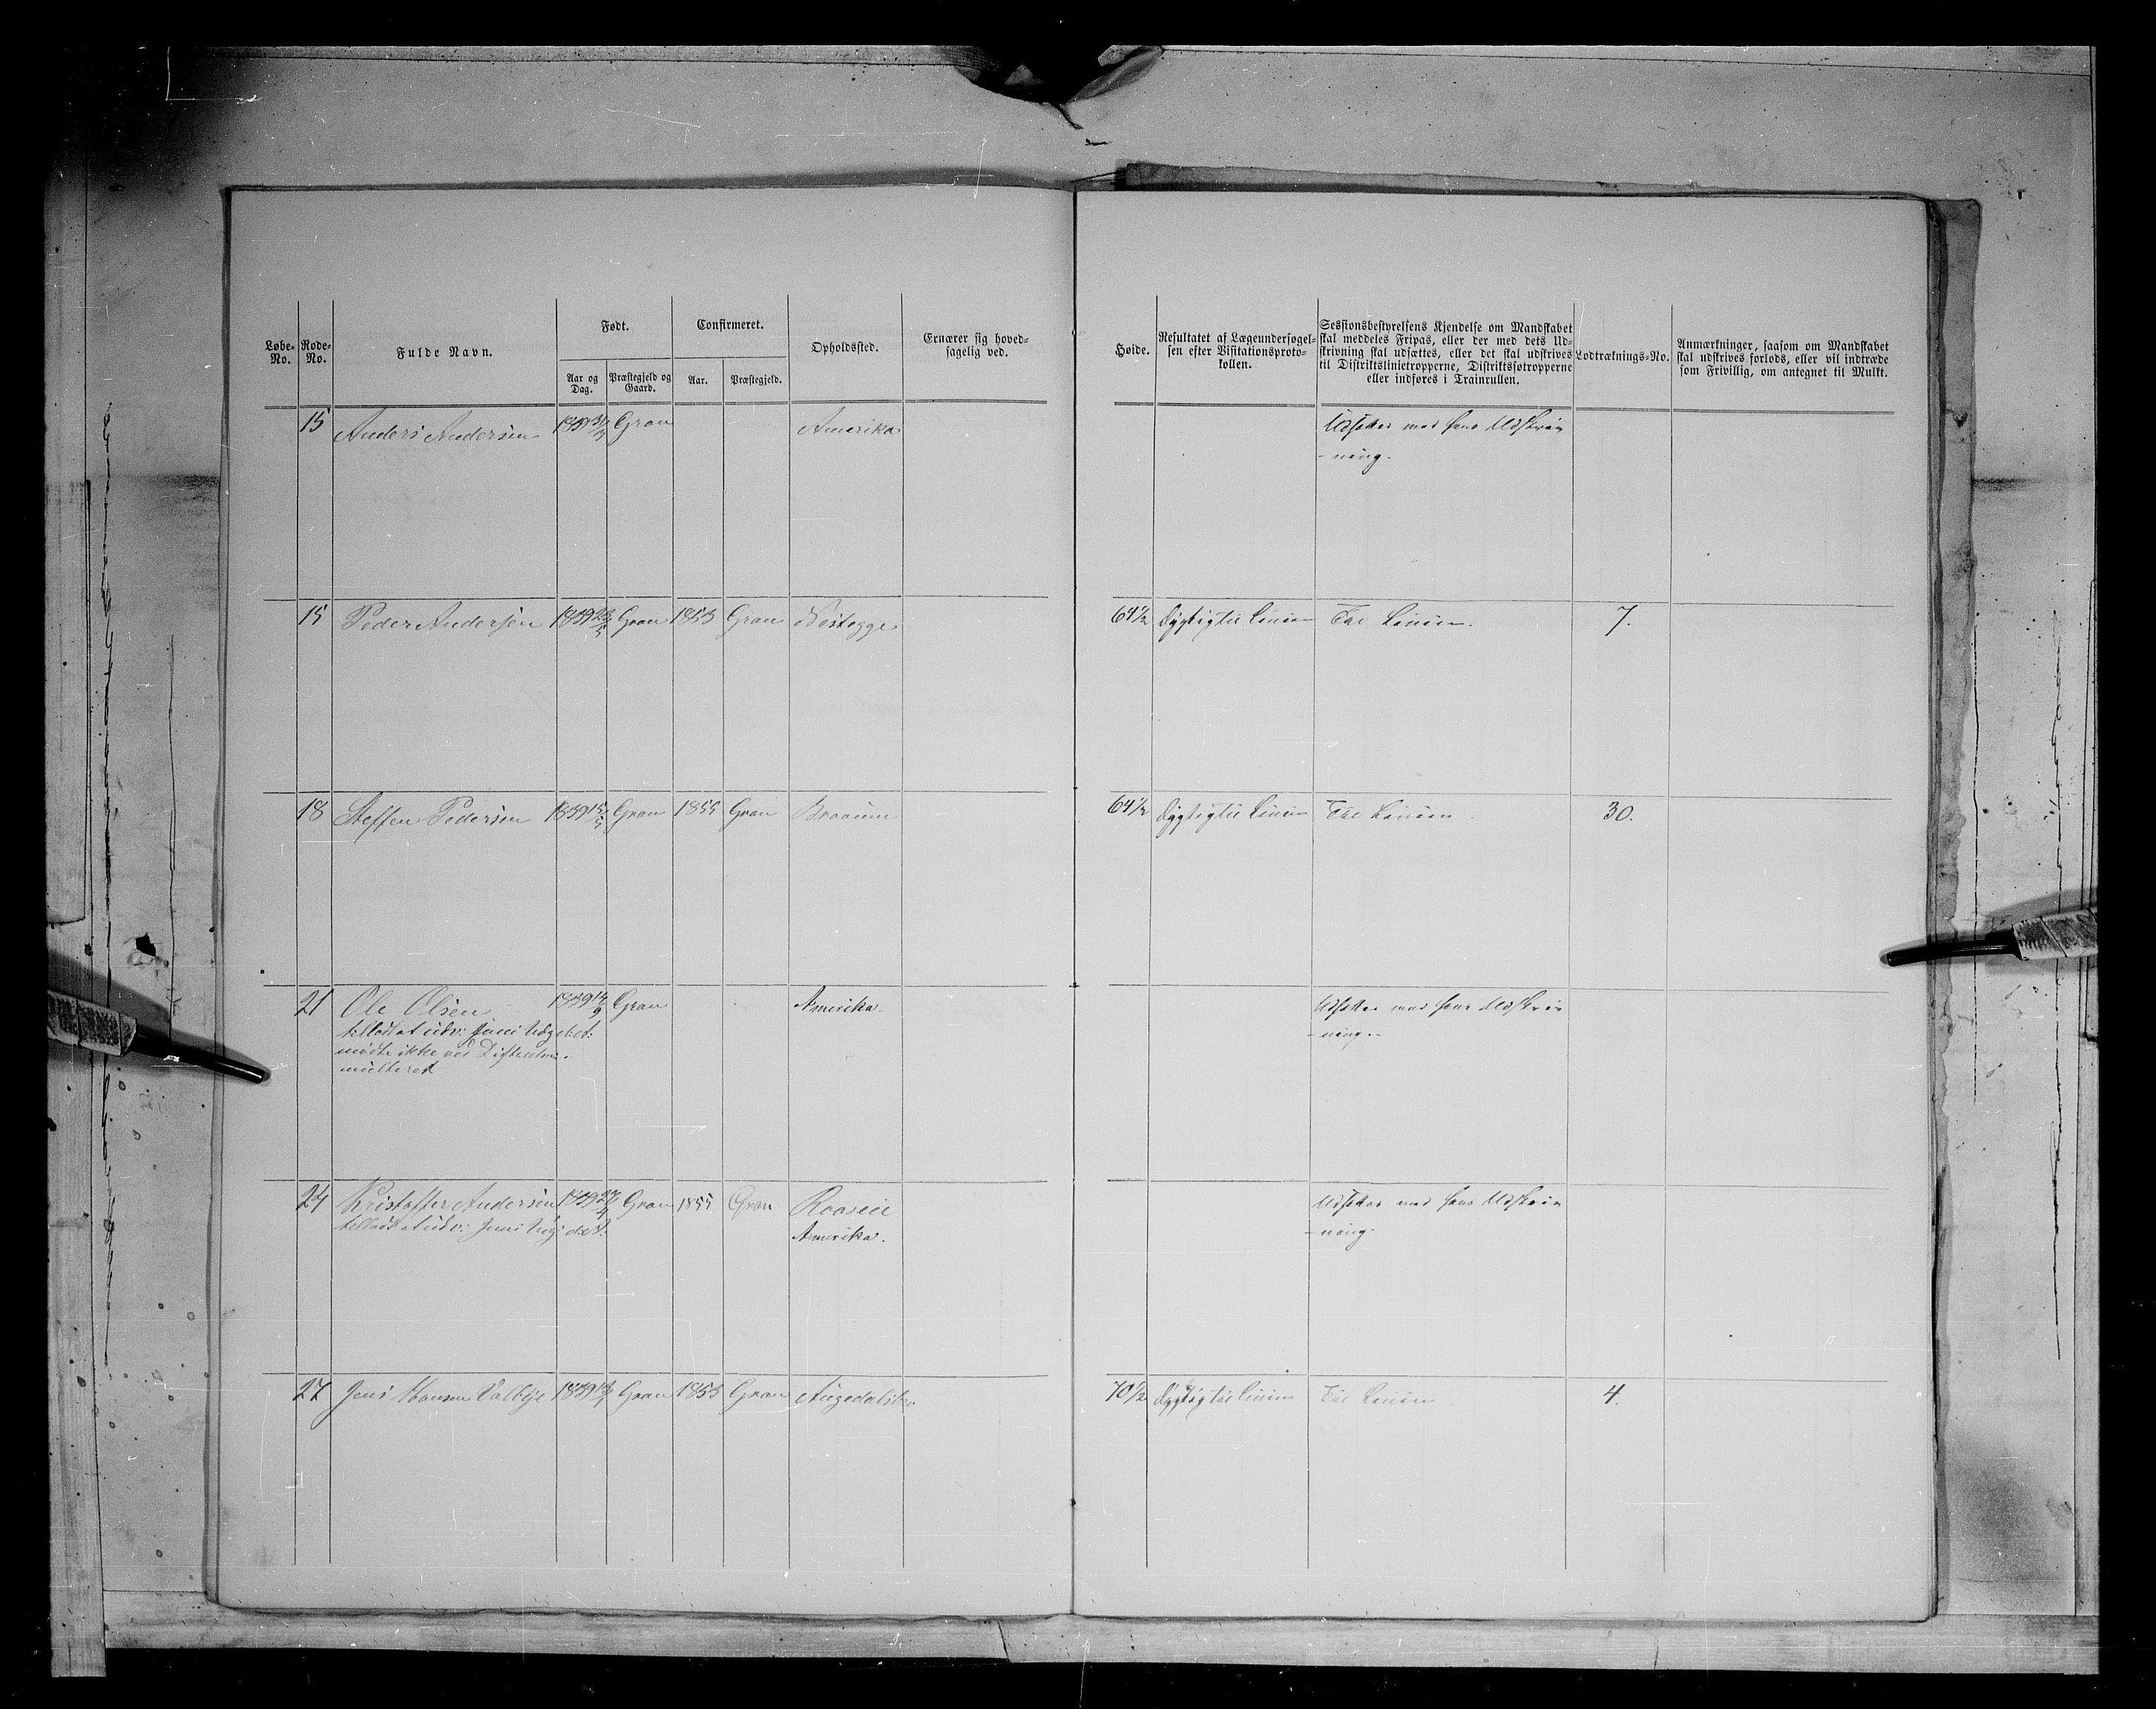 Løbe-No. Rode-No. Fulde Navn. Født. Confirmeret. Opholdssted. Ernærer sig hoved-
sagelig ved.
Aar og Dag. Præstegjeld og Gaard. Aar. Præstegjeld.
Høide. Resultatet af Lægeundersøgel-
sen efter Visitationsproto-
kollen.
Sessionsbestyrelsens Kjendelse om Mandskabet
skal meddeles Fripas, eller der med dets Ud-
skrivning skal udsættes, eller det skal udskrives
til Distriktslinietropperne, Distriktsfotropperne
eller indføres i Trainrullen.
Lodtræknings-No.
Anmærkninger, saasom om Mandskabet
skal udskrives forlods, eller vil indtræde
som Frivillig, om antegnet til Mulkt.
15 Anders Andersen 1839 Gran Amerika Udsættes med hans Udskriv
-ning.
15 Peder Andersen 1839 Gran 1853 Gran 64 1/2 Dygtig til Linien Til Linien. 7.
18 Steffen Pedersen 1839 Gran 1855 Gran 64 1/2 Dygtig til Linien Til Linien. 30.
21 Ole Olsen 1839 Gran Amerika. Udsættes med hans Udskriv
tilladt at udv:
-ning.
mødte ikke ved
multeret
24 Kristoffer Andersen 1839 Gran 1855 Gran Udsættes med hans Udskriv
tilladt at udv:
Amerika. -ning.
27 Jens Hansen 1839 Gran 1853 Gran 70 1/2 Dygtig til Linien Til Linien. 4.